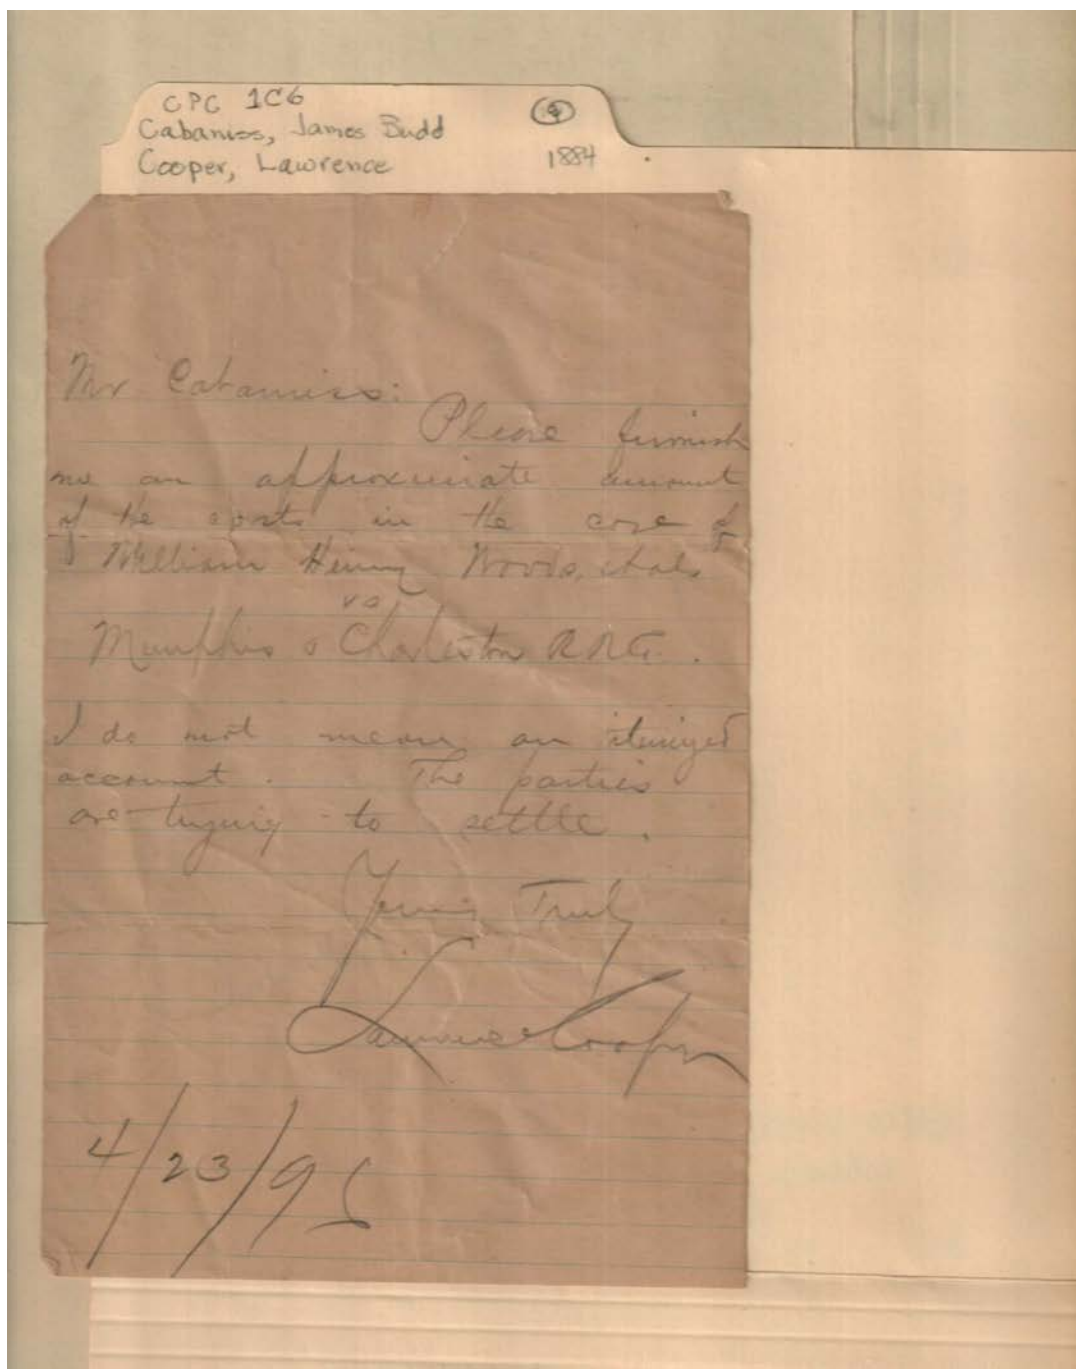 CPC 1C6
Cabaniss, James Budd
Cooper, Lawrence
1884
Mr Cabaniss:
Please furnish
me an approximate amount
of the costs in the case of
William Henry Woods, et als
vs
Memphis & Charleston R.R.Co.
I do not mean an itemized
account. The parties
are trying to settle.
Yours Truly
Lawrence Cooper
4/23/95